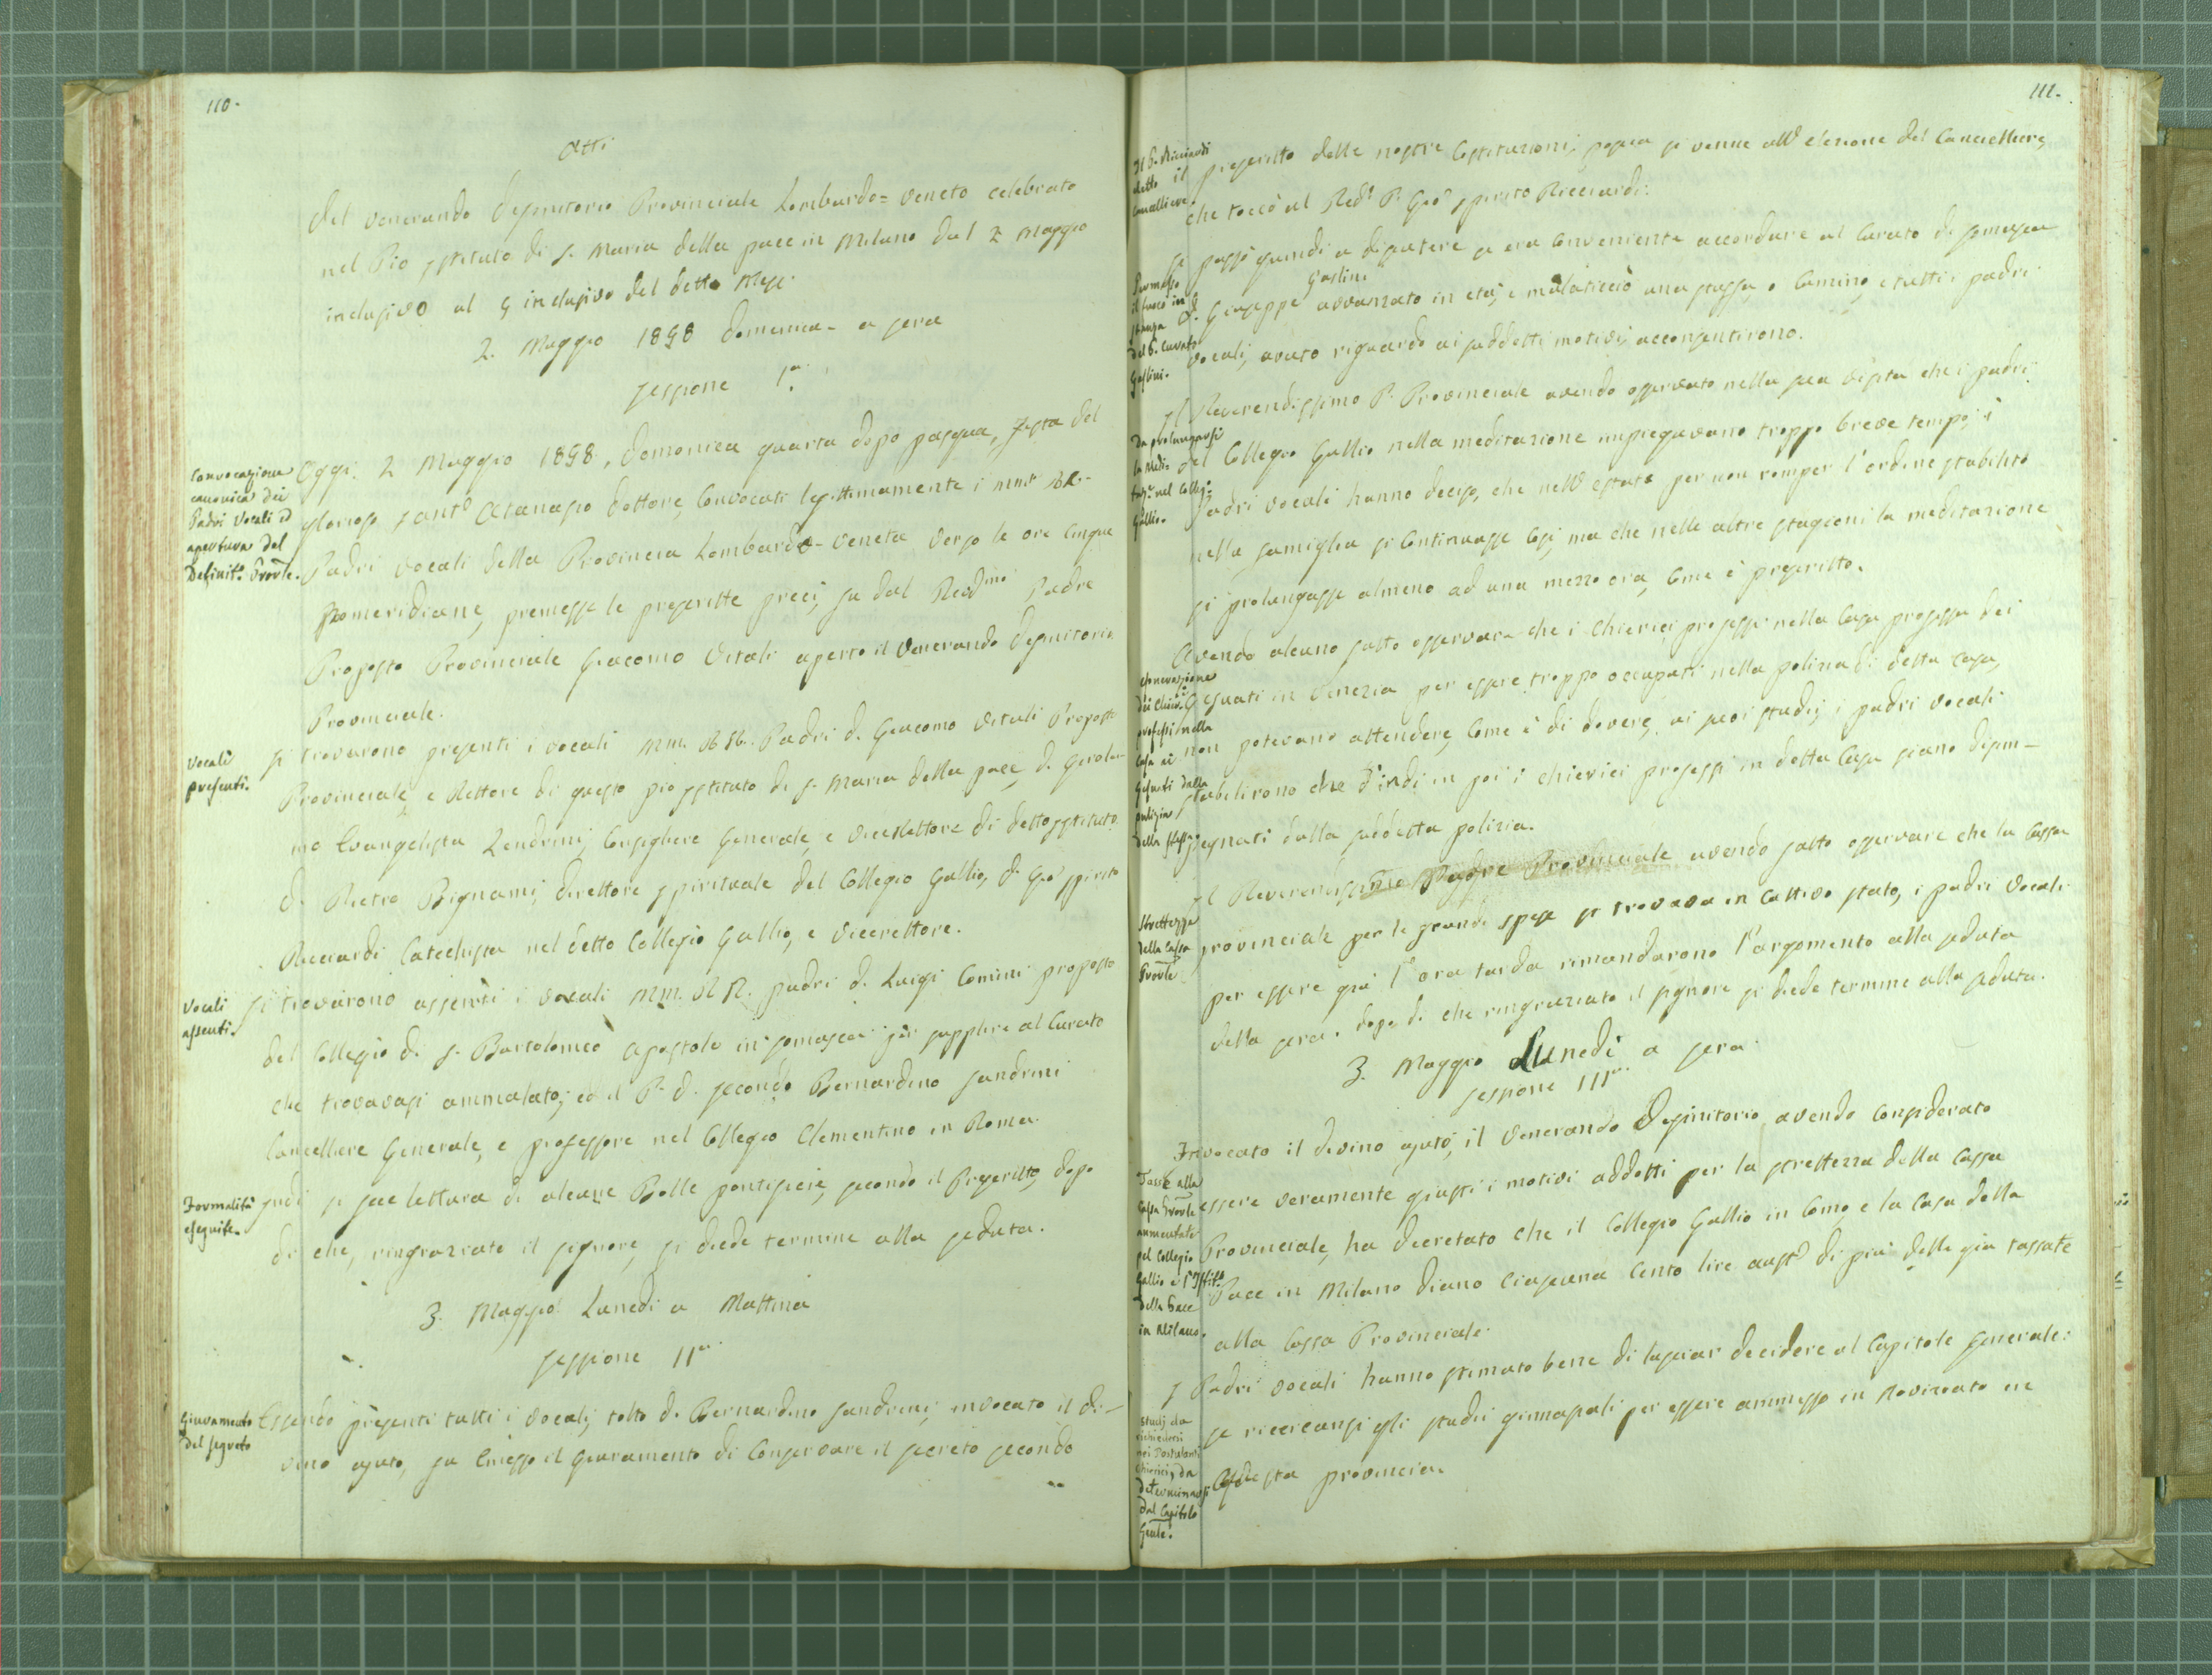 110.
Atti
del venerando Definitorio Provinciale Lombardo=Veneto celebrato
nel Pio Istituto di S. Maria della pace in Milano dal 2 Maggio
inclusivo al 5 inclusivo del detto Mese.
2. Maggio 1858 domenica - a sera
Sessione I.a
Convocazione
canonica dei
Padri Vocali ed
apertura del
Definit.o Provle.
Oggi 2 Maggio 1858, domenica quarta dopo pasqua, festa del
glorioso Santo Atanasio dottore, Convocati legittimamente i MM. RR.
Padri vocali della Provincia Lombardo-Veneta verso le ore cinque
Pomeridiane, premesse le prescritte preci, fu dal Revdmo Padre
Preposto Provinciale Giacomo Vitali aperto il Venerando Definitorio
Provinciale.
Vocali
presenti.
Si trovarono presenti i vocali MM. RR. Padri d. Giacomo Vitali Preposto
Provinciale, e Rettore di questo pio Istituto di S. Maria della pace, d. Girola-
mo Evangelista Zendrini, Consigliere Generale, e Vicerettore di detto Istituto
d. Pietro Bignami, direttore Spirituale del Collegio Gallio, d. Gio. Spirito
Ricciardi Catechista nel detto Collegio Gallio, e Vicerettore.
Vocali
assenti.
Si trovarono assenti i vocali MM. RR. padri d. Luigi Comini preposto
del Collegio di S. Bartolomeo Apostolo in Somasca per supplire al Curato
che trovavasi ammalato; ed il P. d. Secondo Bernardino Sandrini
Cancelliere Generale, e professore nel Collegio Clementino in Roma.
Formalità
eseguite.
Indi si fece lettura di alcune Bolle pontificie, secondo il Prescritto, dopo
di che, ringraziato il Signore, si diede termine alla seduta.
3. Maggio Lunedì a Mattina
Sessione II.a
Giuramento
del segreto
Essendo presenti tutti i vocali, tolto d. Bernardino Sandrini, invocato il di-
vino ajuto, fu Emesso il Giuramento di Conservare il secreto secondo
111.
Il P. Ricciardi
eletto
Cancelliere.
il prescritto delle nostre Costituzioni; poscia si venne all'elezione del Cancelliere,
che toccò al Redo P. Gio. Spirito Ricciardi.
Permesso
il fuoco in
stanza
del P. Curato
Gaslini.
Si passò quindi a disputere se era Conveniente accordare al Curato di Somasca
Gaslini
d. Giuseppe avvanzato in età, e malaticcio una stuffa, o Camino, e tutti i padri
vocali, avuto riguardo ai suddetti motivi, acconsentirono.
Da prolungarsi
la Medi-
taz.e nel Colleg.
Gallio.
Il Reverendissimo P. Provinciale avendo osservato nella sua visita che i padri
del Collegio Gallio nella meditazione impiegavano troppo breve tempo, i
Padri vocali hanno deciso, che nell'estate per non romper l'ordine stabilito
nella famiglia si Continuasse Così, ma che nelle altre stagioni la meditazione
si prolungasse almeno ad una mezzo ora, Come è prescritto.
Esonerazione
dei Chierici
professi nella
Casa ai
Gesuati dalla
pulizia
della stessa.
Avendo alcuno fatto osservare che i Chierici professi nella Casa professa dei
Gesuati in Venezia per essere troppo occupati nella polizia di detta Casa,
non potevano attendere, Come è di dovere, ai suoi studj, i padri vocali
stabilirono che d'indi in poi i Chierici professi in detta Casa siano disim-
pegnati dalla suddetta polizia.
Strettezze
della Cassa
Provle
Il Reverendissimo Padre Provinciale avendo fatto osservare che la Cassa
provinciale per le grandi spese si trovava in Cattivo stato, i padri Vocali
per essere già l'ora tarda rimandarono l'argomento alla seduta
della sera. dopo di che ringraziato il Signore si diede termine alla seduta.
3. Maggio Lunedì a sera
Sessione III.a
Invocato il divino ajuto, il Venerando Definitorio avendo Considerato
Tasse alla
Cassa Provle
aumentate
pel Collegio
Gallio e l'Istit.o
della Pace
in Milano.
essere veramente giusti i motivi addotti per la strettezza della Cassa
Provinciale, ha decretato che il Collegio Gallio in Como, e la Casa della
Pace in Milano diano Ciascuna Cento lire aust.e di più delle già tassate
alla Cassa Provinciale.
Studj da
richiedersi
nei Postulanti
Chierici, da
determinarsi
dal Capitolo
Genle.
I Padri vocali hanno stimato bene di lasciar decidere al Capitolo Generale:
se ricercansi gli studii ginnasiali per essere ammesso in Noviziato in
questa provincia.